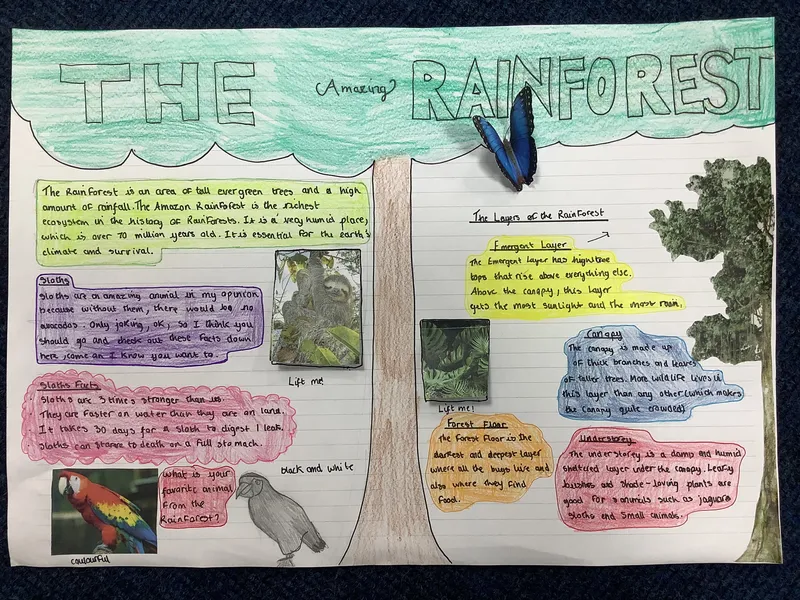 THE Amazing RAINFOREST
The Rainforest is an area of tall evergreen trees and a high
amount of rainfall. The Amazon Rainforest is the richest
ecosystem in the history of Rainforests. It is a very humid place,
which is over 70 million years old. It is essential for the earth's
climate and survival.
Sloths
Sloths are an amazing animal in my opinion
because without them, there would be no
avocados. Only joking, ok, so I think you
should go and check out these facts down
here, come on I know you want to.
Lift me!
Sloths Facts
Sloths are 3 times stronger than us.
They are faster on water than they are on land.
It takes 30 days for a sloth to digest 1 leaf.
Sloths can starve to death on a full stomach.
colourful
What is your
favorite animal
from the
Rainforest?
black and white
The Layers of the Rainforest
Emergent Layer
The Emergent Layer has high tree
tops that rise above everything else.
Above the canopy, this layer
gets the most sunlight and the most rain.
Canopy
The canopy is made up
of thick branches and leaves
of taller trees. More wildlife lives in
this layer than any other (which makes
the canopy quite crowded)
Lift me!
Forest Floor
The Forest Floor is the
darkest and deepest layer
where all the bugs live and
also where they find
food.
Understorey
The understorey is a damp and humid
sheltered layer under the canopy. Leafy
bushes and shade-loving plants are
good for animals such as jaguars
sloths and small animals.